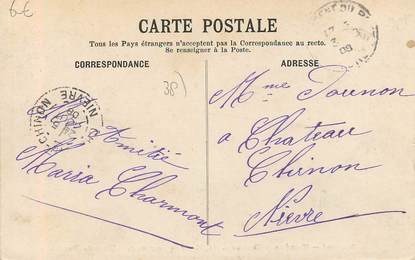 6€
CARTE POSTALE
Tous les Pays étrangers n'acceptent pas la Correspondance au recto.
Se renseigner à la Poste.
CORRESPONDANCE
ADRESSE
38)
Amitié
Maria Charmont
Mme Tournon
a Chateau
Chinon
Nièvre
CHINON
NIEVRE